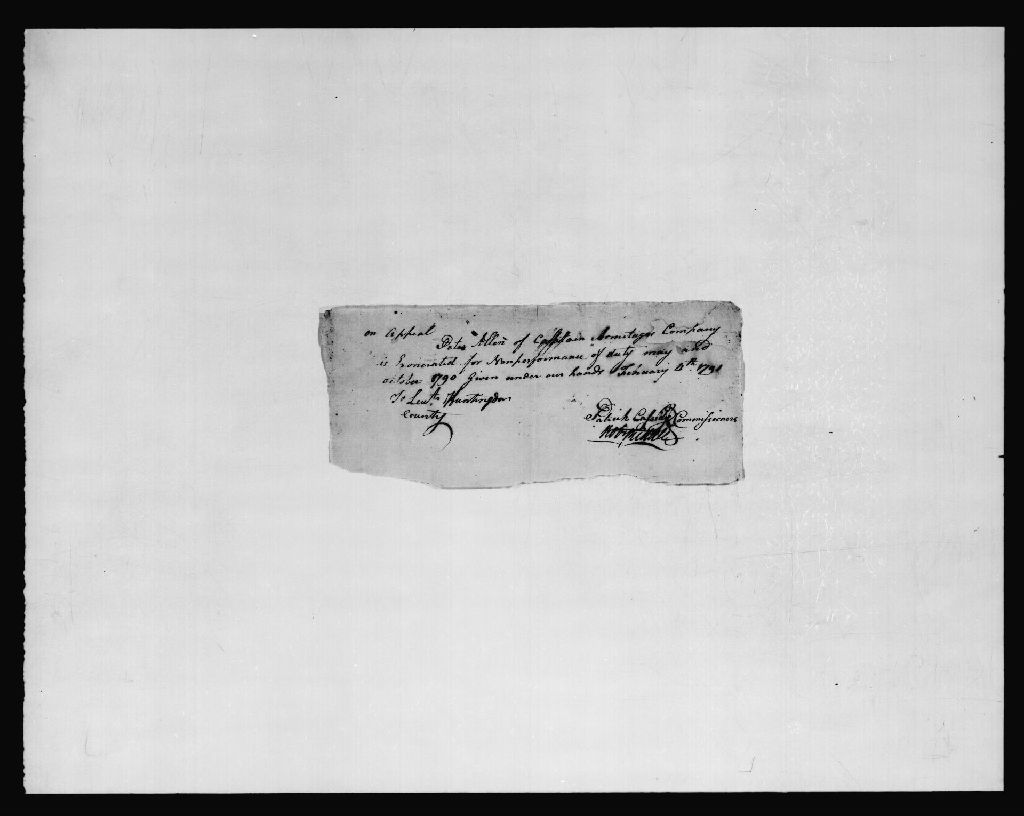 on Appeal
Peter Allen of Captain Armitages Company
is Exonerated for Nonperformance of duty may and
october 1790 Given under our hands February 4th 1791
To Leut. Huntingdon
County
Patrick Commissioners